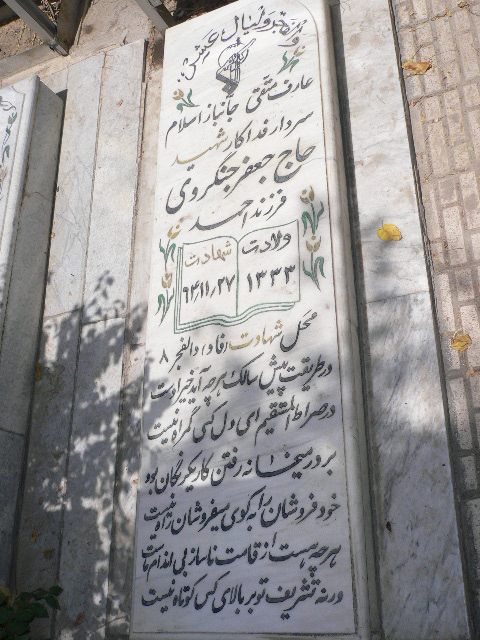 عارف متقی جانباز اسلام
سردار فداکار شهید
حاج جعفر جنگروی
فرزند احمد
ولادت
۱۳۳۳
شهادت
۶۴/۱۱/۲۷
محل شهادت (فاو) والفجر ۸
در طریقت پیش سالک هر چه آید خیر اوست
در صراط المستقیم ای دل کسی گمراه نیست
بر در میخانه رفتن کار یکرنگان بود
خود فروشان را به کوی میفروشان راه نیست
هر چه هست از قامت ناساز بی اندام ماست
ورنه تشریف تو بر بالای کس کوتاه نیست